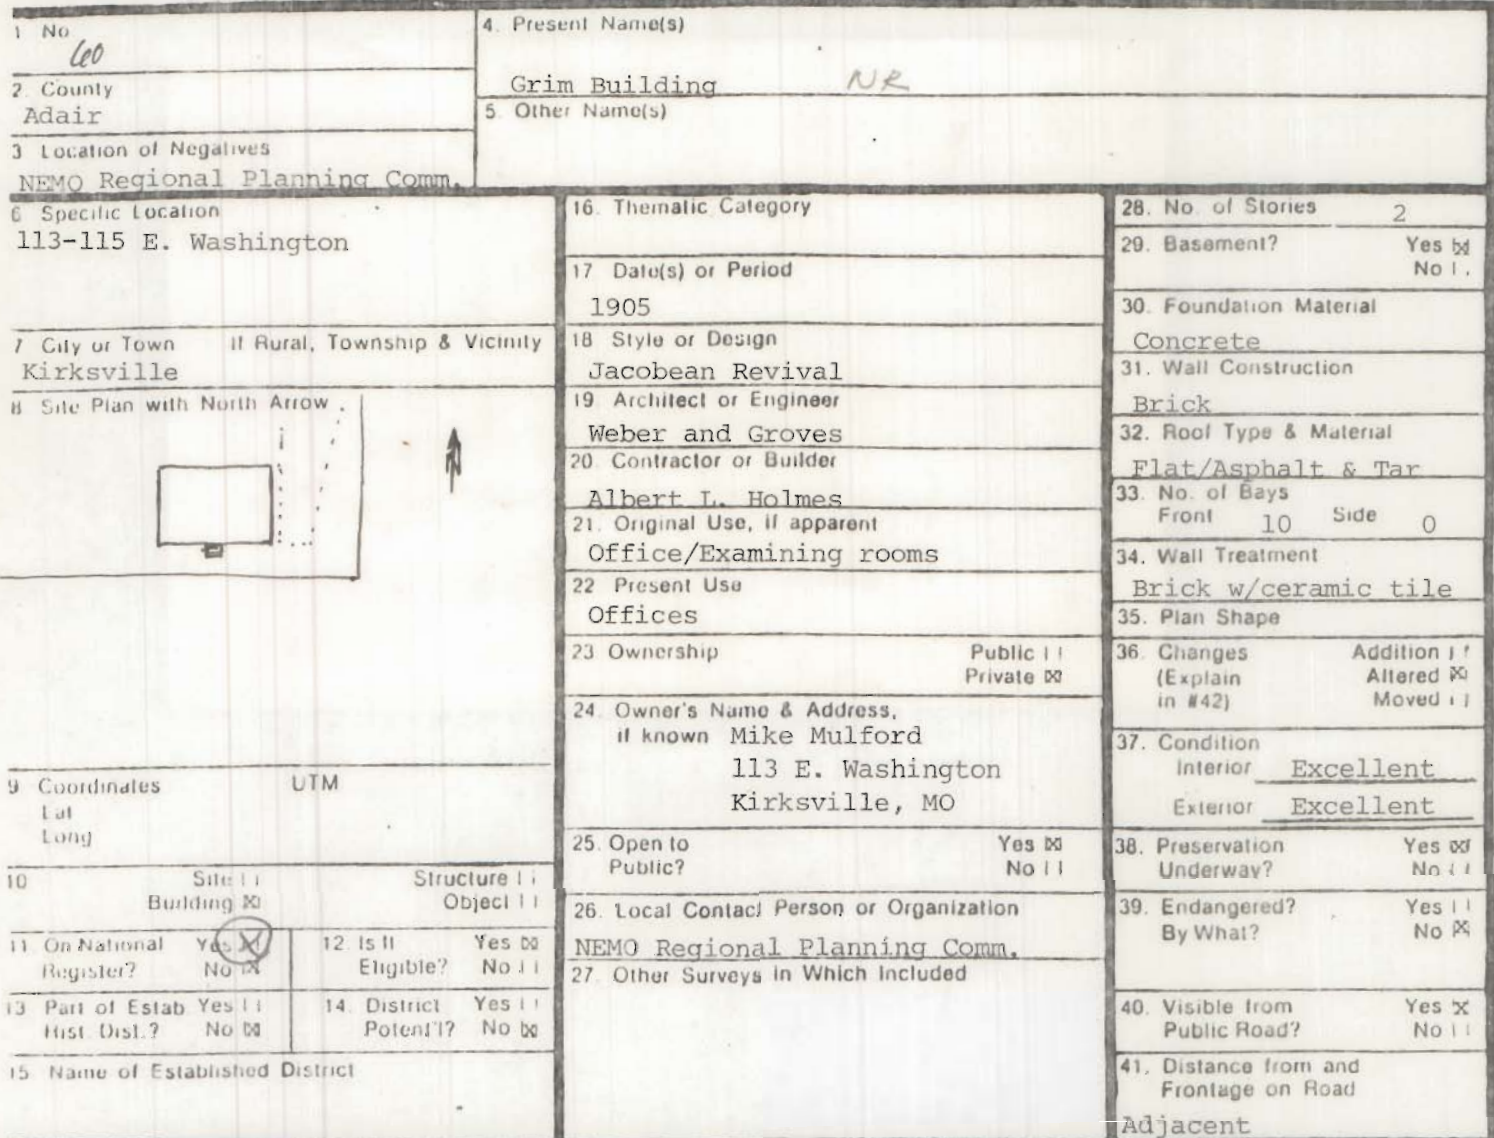 1 No
60
2. County
Adair
3 Location of Negatives
NEMO Regional Planning Comm.
4. Present Name(s)
Grim Building NR
5. Other Name(s)
6 Specific Location
113-115 E. Washington
7 City or Town If Rural, Township & Vicinity
Kirksville
8 Site Plan with North Arrow
N
9 Coordinates UTM
Lat
Long
10 Site Structure
Building ☒ Object
11. On National Yes ☒ 
Register? No ☒
12. Is It Yes ☒
Eligible? No
13 Part of Estab Yes
Hist. Dist.? No ☒
14. District Yes
Potent'l? No ☒
15 Name of Established District
16. Thematic Category
17 Date(s) or Period
1905
18 Style or Design
Jacobean Revival
19. Architect or Engineer
Weber and Groves
20. Contractor or Builder
Albert L. Holmes
21. Original Use, if apparent
Office/Examining rooms
22 Present Use
Offices
23 Ownership Public
Private ☒
24. Owner's Name & Address,
if known Mike Mulford
113 E. Washington
Kirksville, MO
25. Open to Yes ☒
Public? No
26. Local Contact Person or Organization
NEMO Regional Planning Comm.
27. Other Surveys in Which Included
28. No. of Stories 2
29. Basement? Yes ☒
No
30. Foundation Material
Concrete
31. Wall Construction
Brick
32. Roof Type & Material
Flat/Asphalt & Tar
33. No. of Bays
Front 10 Side 0
34. Wall Treatment
Brick w/ceramic tile
35. Plan Shape
36. Changes Addition
(Explain Altered ☒
in #42) Moved
37. Condition
Interior Excellent
Exterior Excellent
38. Preservation Yes ☒
Underway? No
39. Endangered? Yes
By What? No ☒
40. Visible from Yes X
Public Road? No
41. Distance from and
Frontage on Road
Adjacent